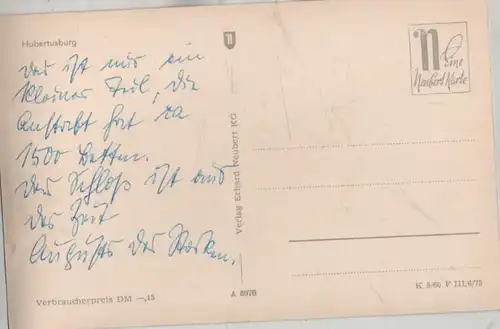 Hubertusburg
das ist nur ein
kleiner Teil, die
Anstalt hat ca
1500 Betten.
das Schloß ist aus
der Zeit
Augusts des Starken.
Verbraucherpreis DM —,15
A 897B
Verlag Erhard Neubert KG
n
Eine
Neubert Karte
K 5/60 F III/6/75